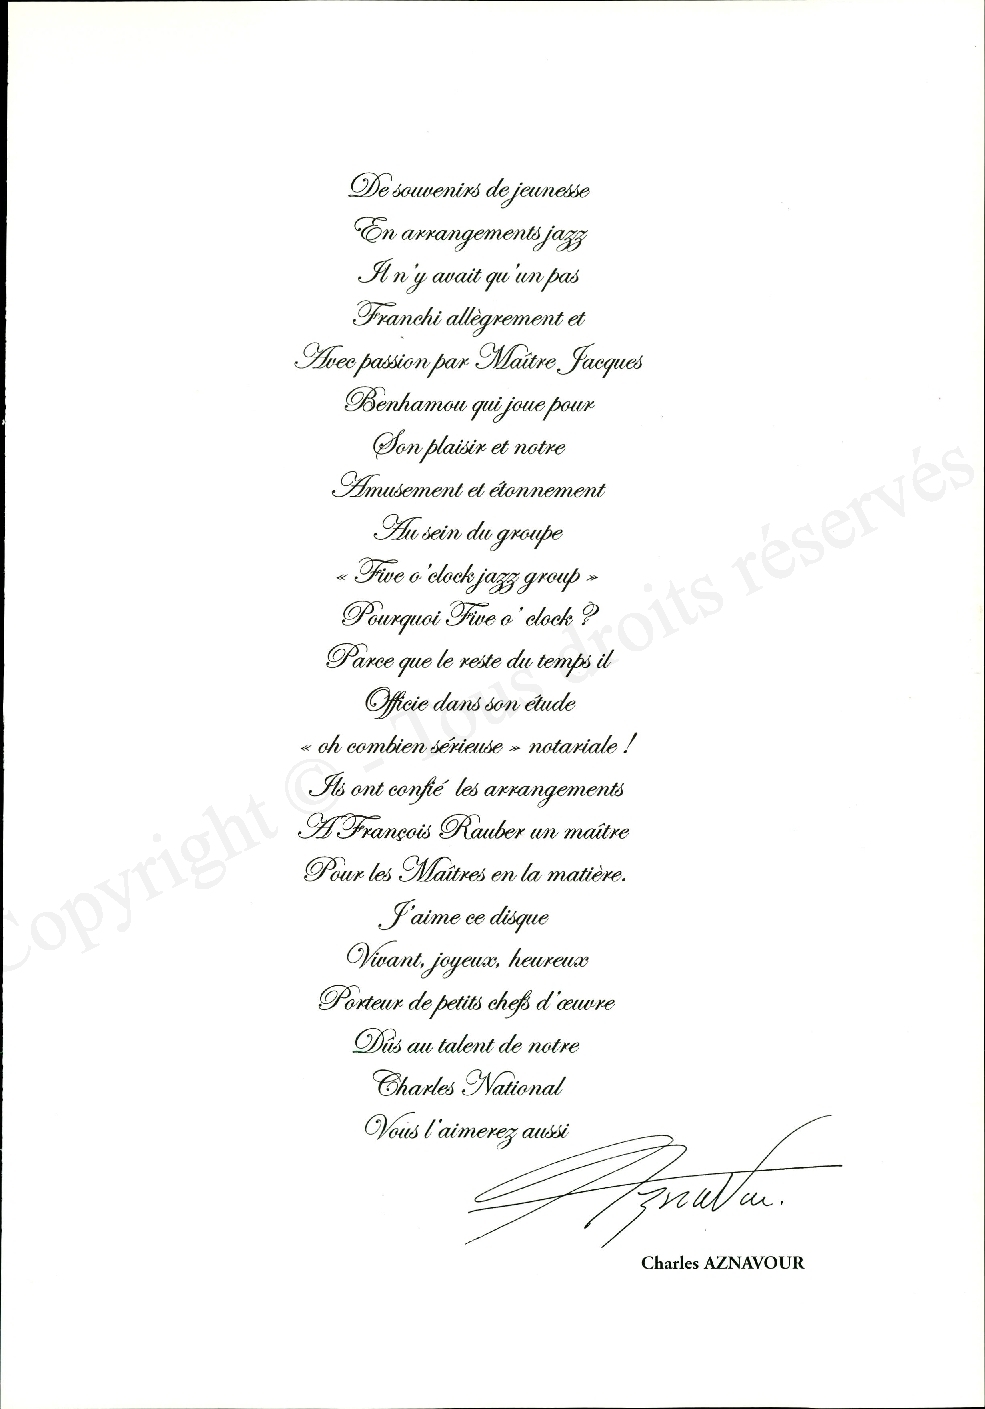 De souvenirs de jeunesse
En arrangements jazz
Il n'y avait qu'un pas
Franchi allègrement et
Avec passion par Maître Jacques
Benhamou qui joue pour
Son plaisir et notre
Amusement et étonnement
Au sein du groupe
« Five o'clock jazz group »
Pourquoi Five o' clock ?
Parce que le reste du temps il
Officie dans son étude
« oh combien sérieuse » notariale !
Ils ont confié les arrangements
A François Rauber un maître
Pour les Maîtres en la matière.
J'aime ce disque
Vivant, joyeux, heureux
Porteur de petits chefs d'œuvre
Dûs au talent de notre
Charles National
Vous l'aimerez aussi
Aznavour.
Charles AZNAVOUR
Copyright © - Tous droits réservés